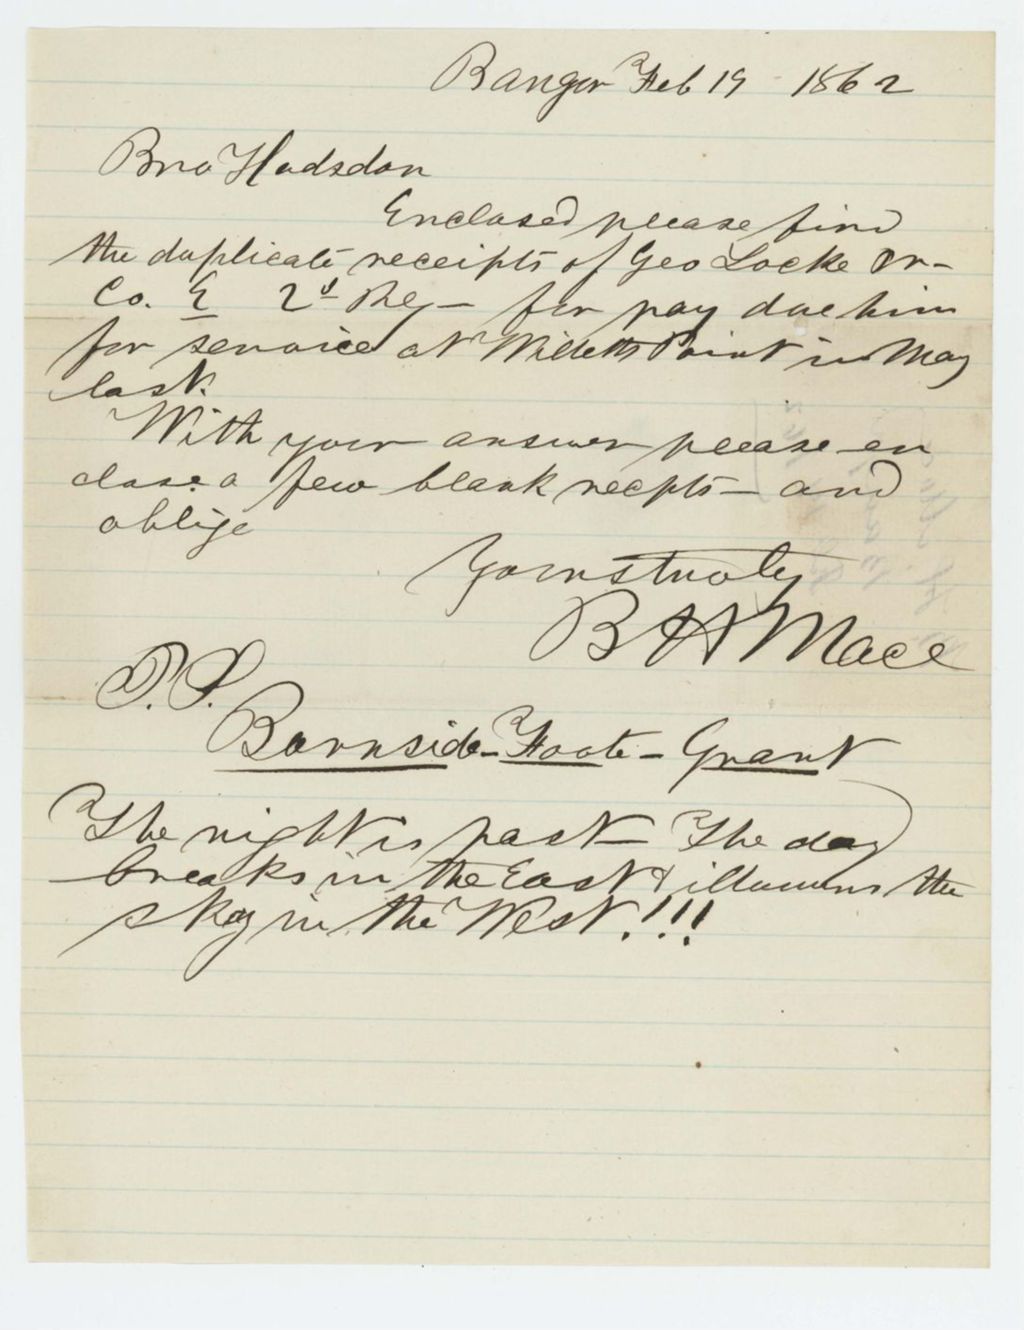 Bangor Feb 19 - 1862
Bro Hodsdon
Enclosed please find
the duplicate receipts of Geo Locke Jr -
Co. E 2d Reg - for pay due him
for service at Willetts Point in May
last.
With your answer please en
close a few blank recpts - and
oblige
Yours truly
B H Mace
P.S.
Burnside - Foote - Grant
The night is past - The day
breaks in the East & illumins the
sky in the West.!!!